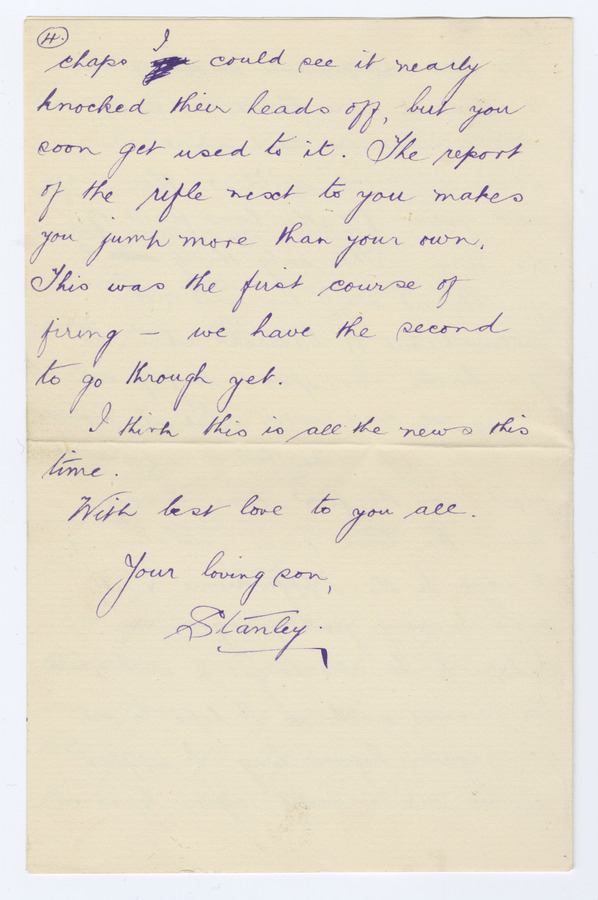 4.
chaps I could see it nearly
knocked their heads off, but you
soon get used to it. The report
of the rifle next to you makes
you jump more than your own.
This was the first course of
firing — we have the second
to go through yet.
I think this is all the news this
time.
With best love to you all.
Your loving son,
Stanley.